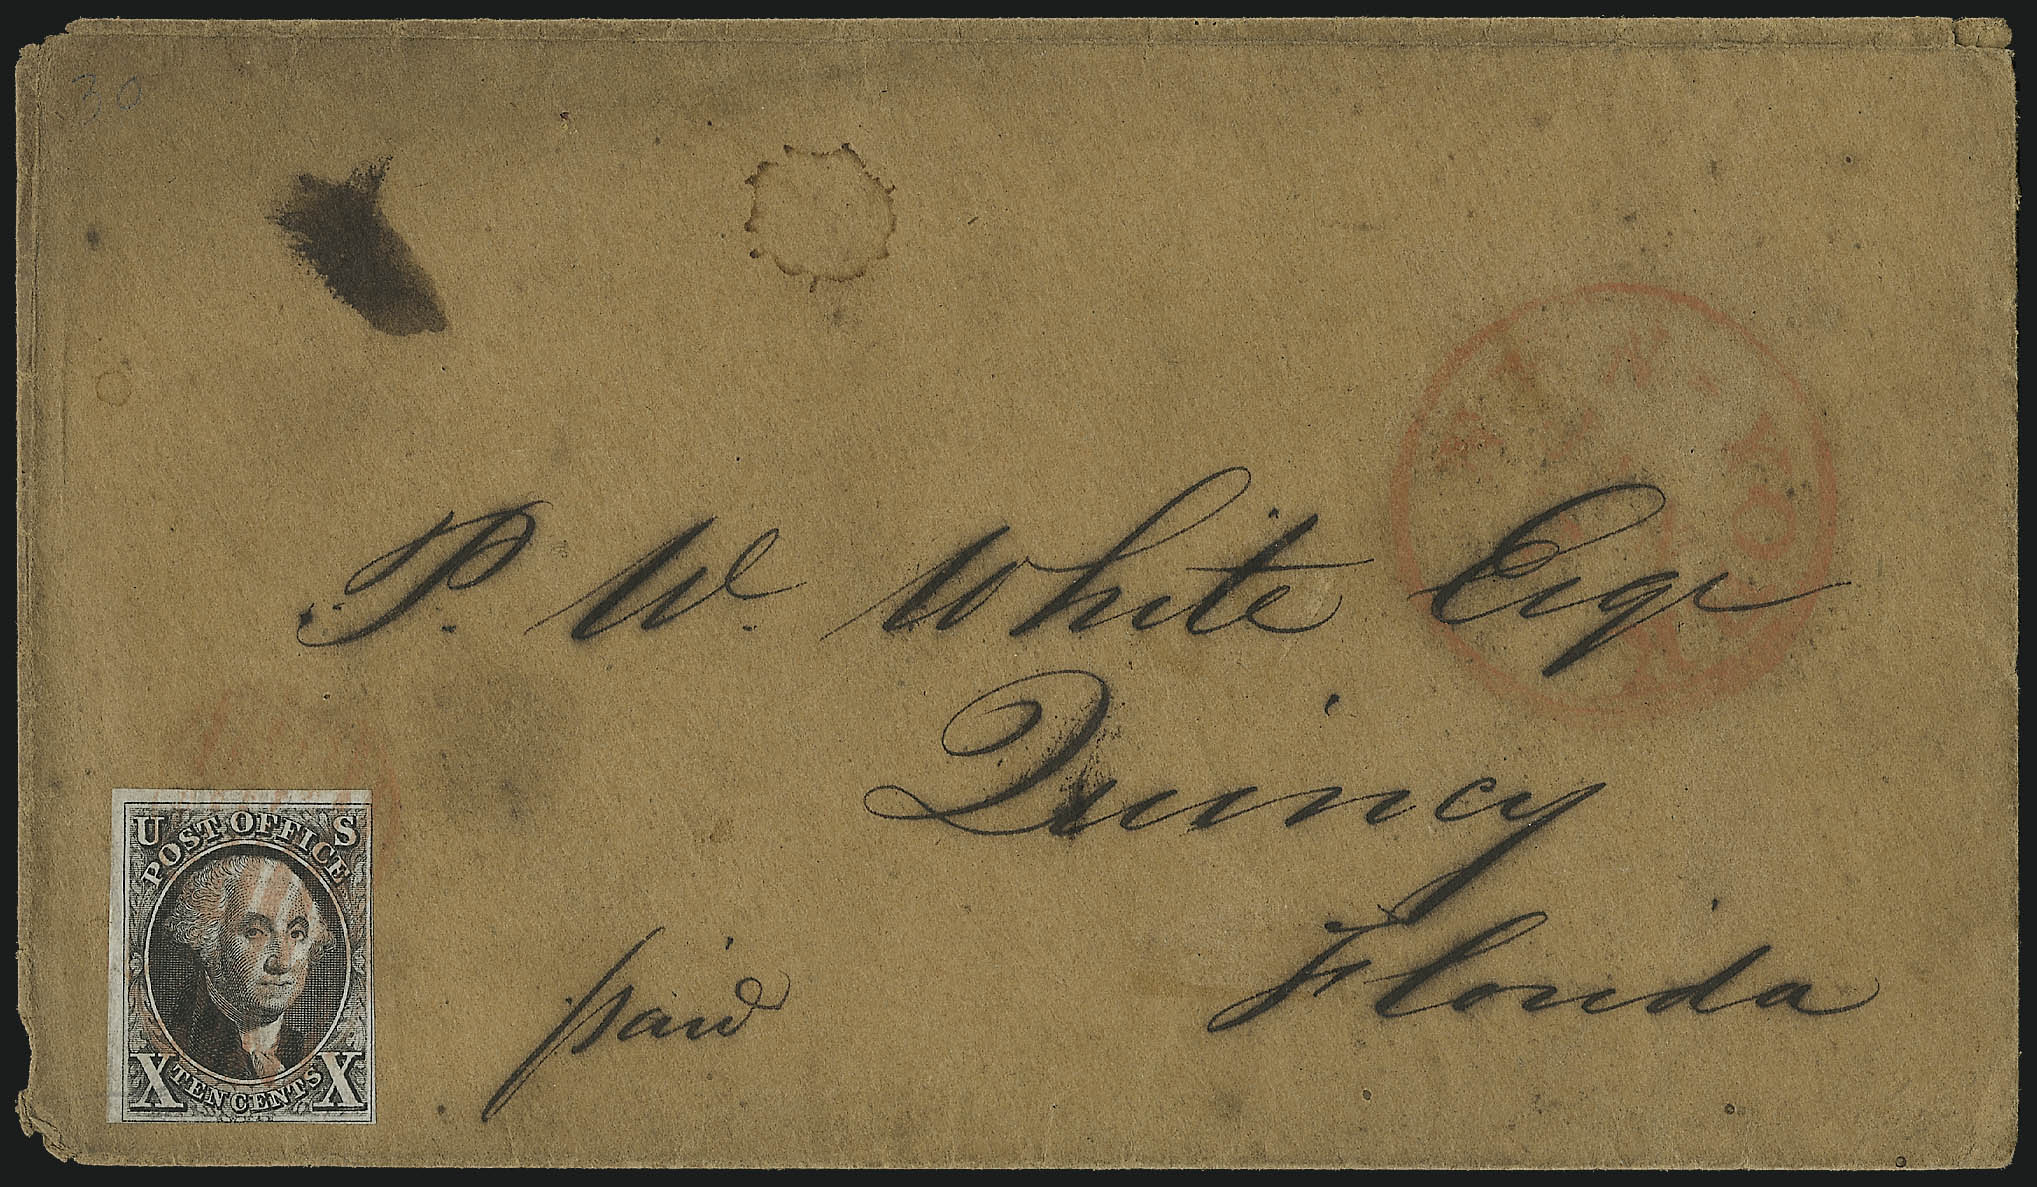 30
P. W. White Esqr
Quincy
Florida
paid
U S
POST OFFICE
X TEN CENTS X